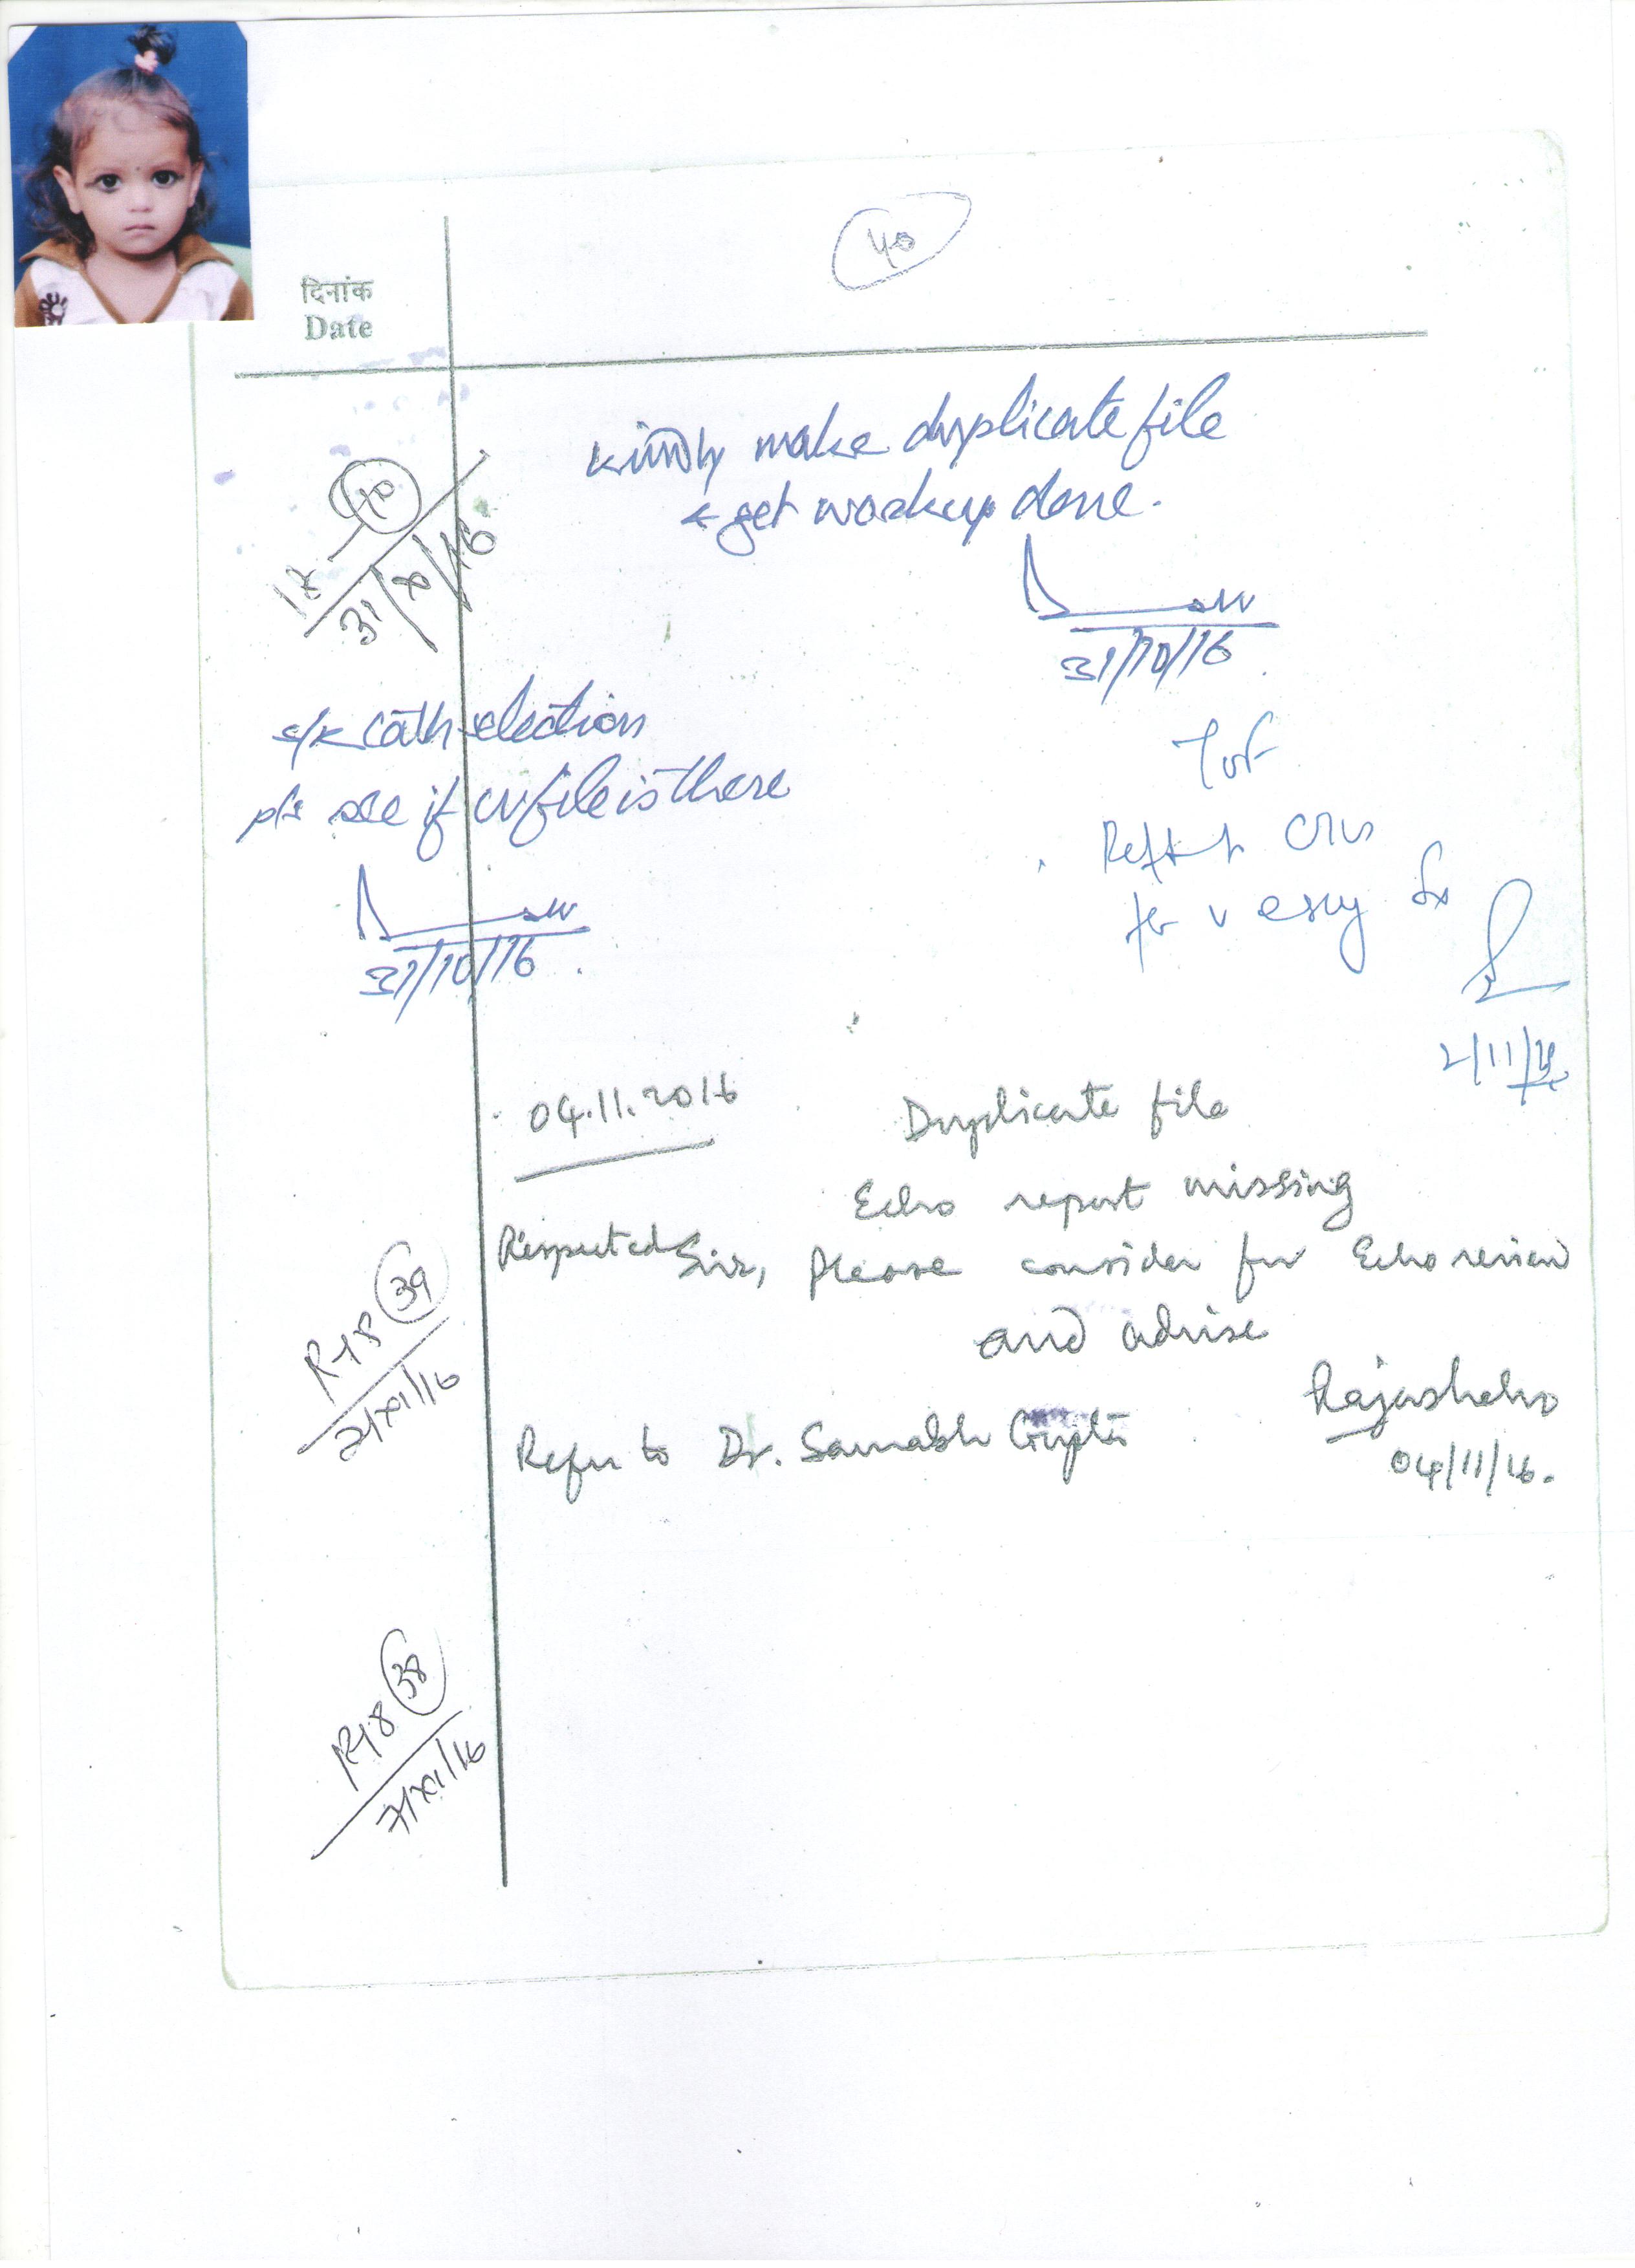 40
दिनांक
Date
kindly make duplicate file
& get workup done.
40
31/X/16
31/10/16
c/k cath section
pls see if CV file is there
31/10/16
TOF
CTVS
for v early Sx
2/11/16
04.11.2016
Duplicate file
Echo report missing
Respected Sir, Please consider for Echo review
and advise
39
2/XI/16
Rajashekhar
Refer to Dr. Saurabh Gupta
04/11/16.
38
7/XI/16